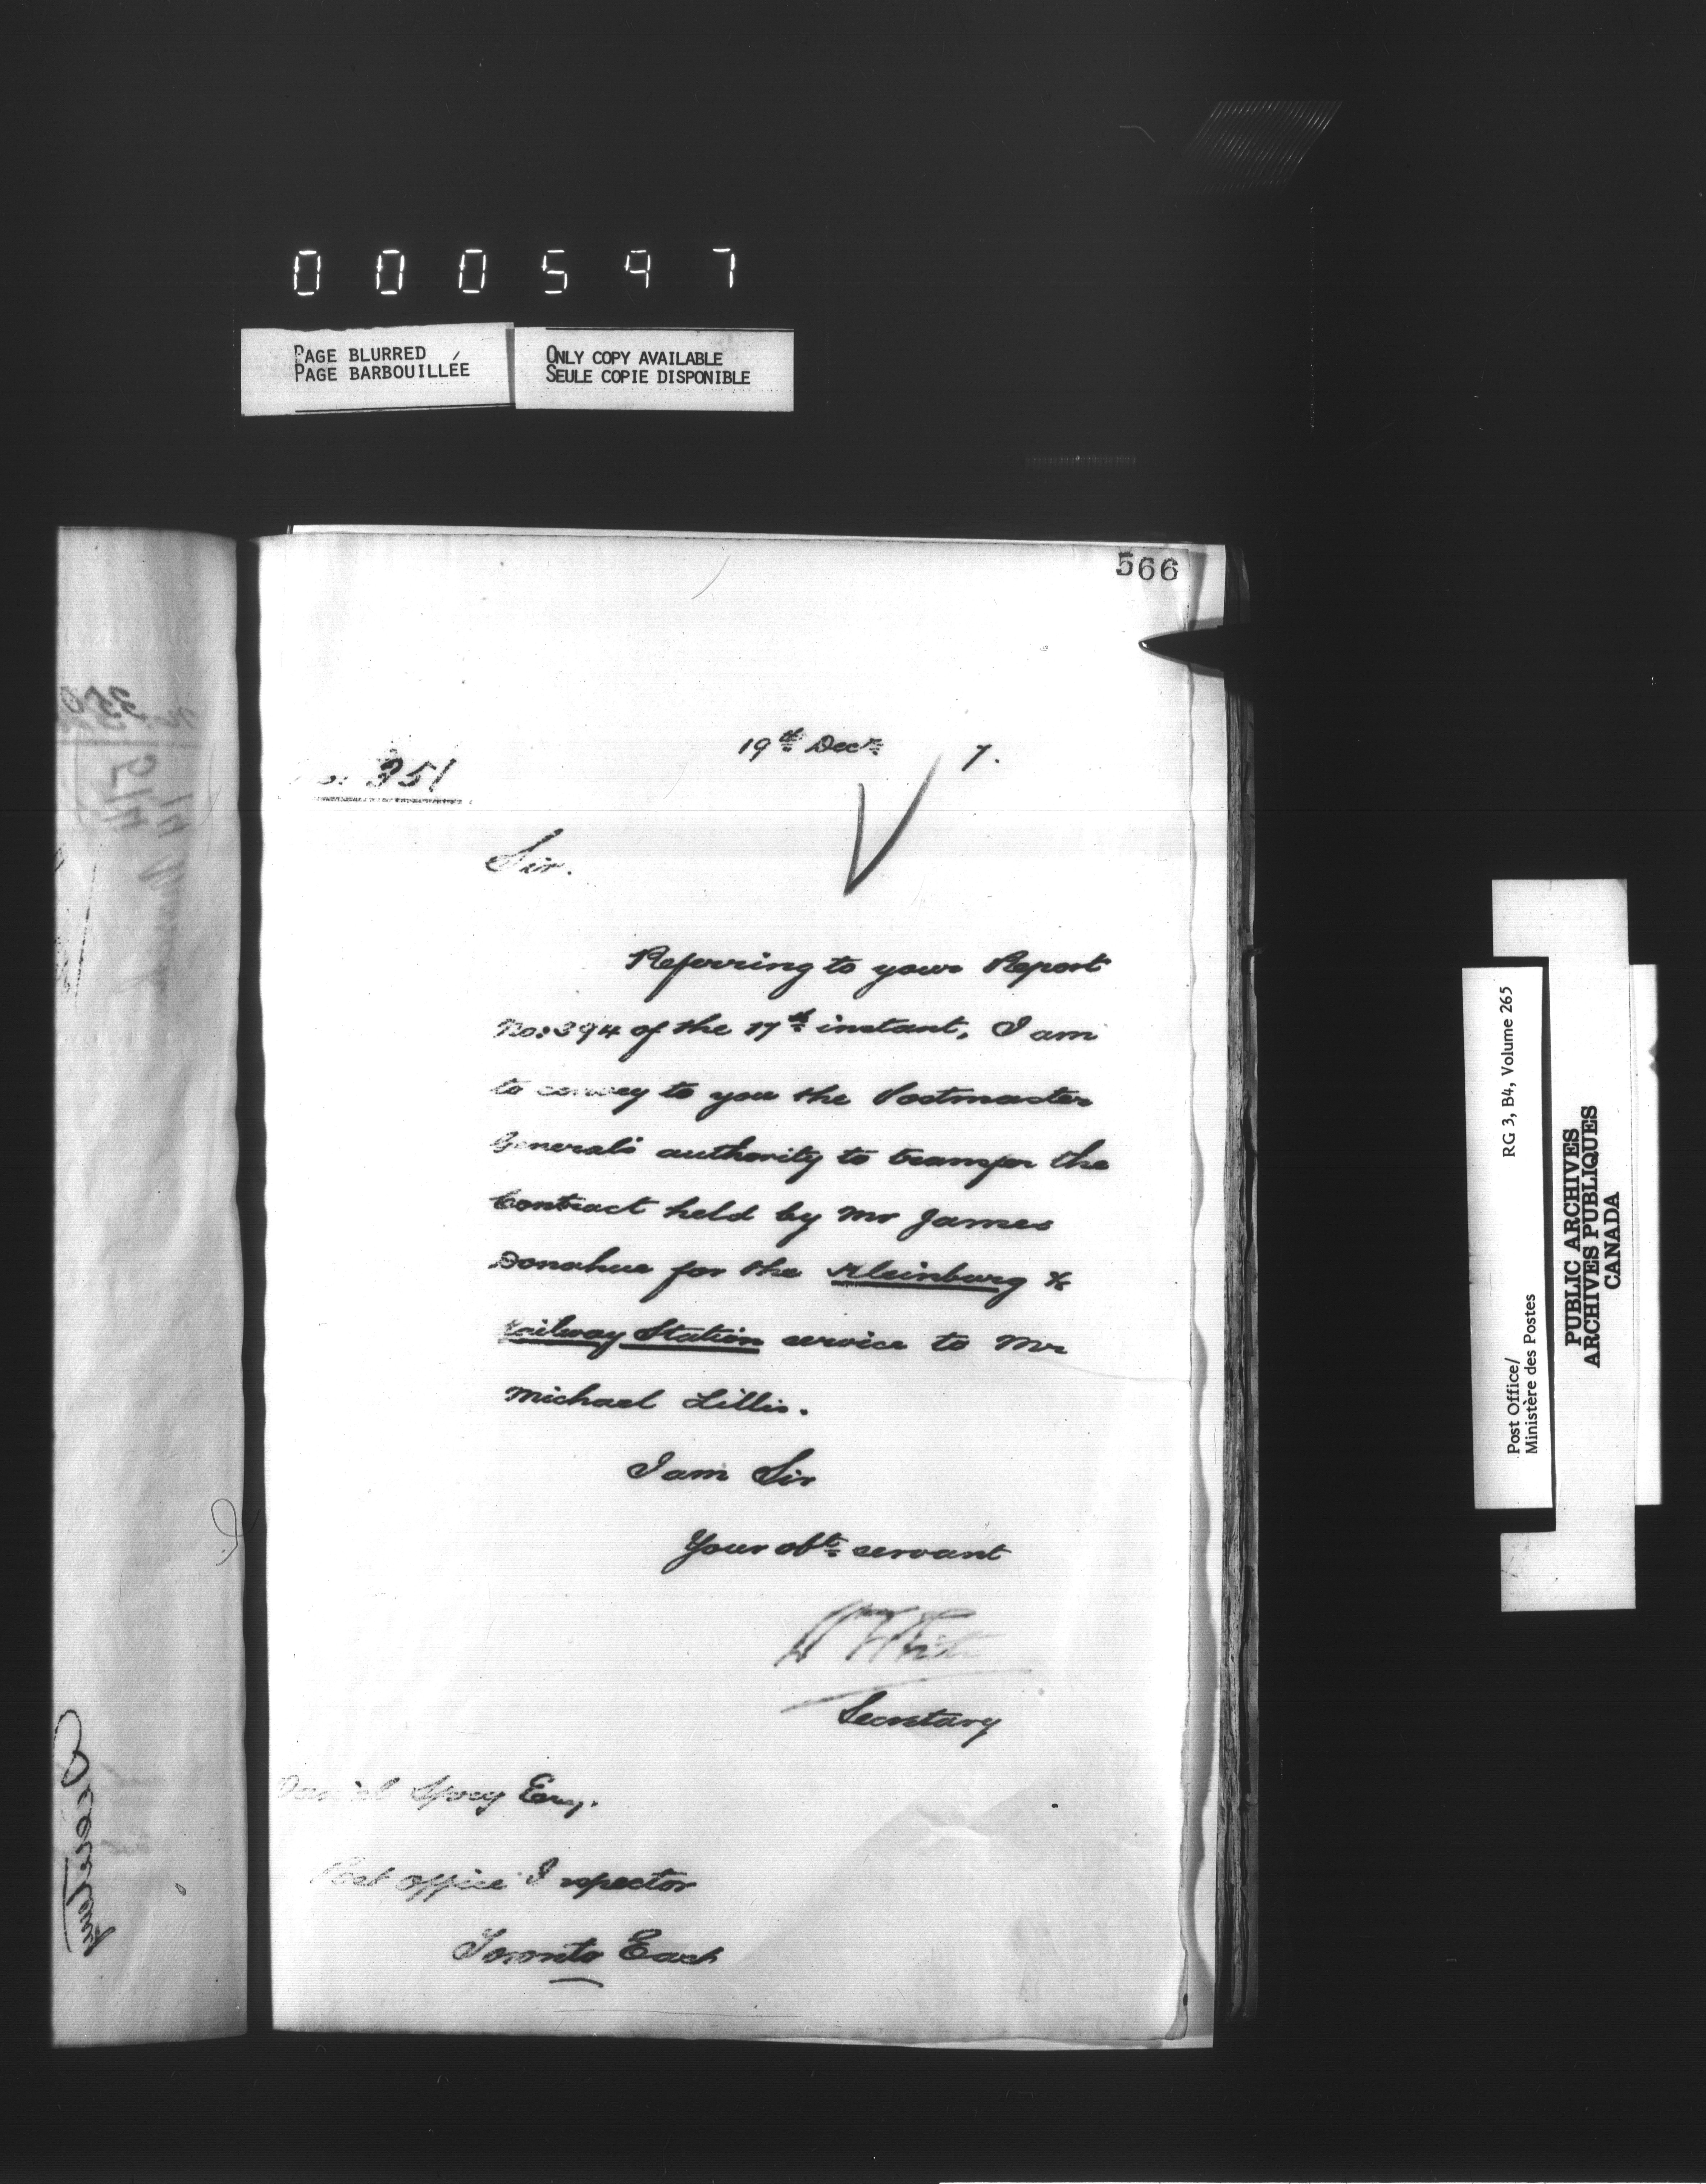 000597
PAGE BLURRED
PAGE BARBOUILLÉE
ONLY COPY AVAILABLE
SEULE COPIE DISPONIBLE
566
19th Decr 7.
351
Sir.
Referring to your Report
No: 394 of the 17th instant, I am
to convey to you the Postmaster
General's authority to transfer the
Contract held by Mr James
Donahue for the Kleinburg &
Railway Station service to Mr
Michael Lillis.
I am Sir
Your obt servant
Wm White
Secretary
Daniel Spry Esq.
Post Office Inspector
Toronto East
RG 3, B4, Volume 265
Post Office/
Ministère des Postes
PUBLIC ARCHIVES
ARCHIVES PUBLIQUES
CANADA